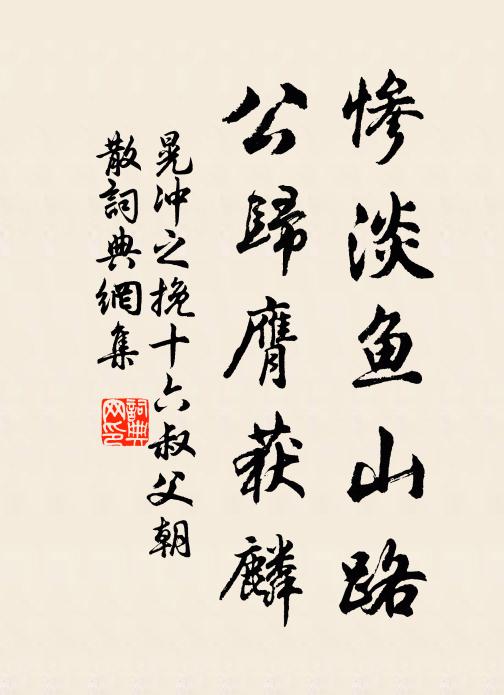 惨淡鱼山路
公歸膺获麟
晃沖之挽十六叔父朝
散詞典網集
詞典
网印